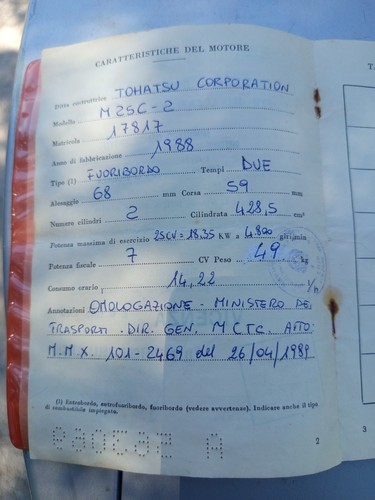 CARATTERISTICHE DEL MOTORE
Ditta costruttrice TOHATSU CORPORATION
Modello M25C-2
Matricola 17817
Anno di fabbricazione 1988
Tipo (1) FUORIBORDO Tempi DUE
Alesaggio 68 mm Corsa 59 mm
Numero cilindri 2 Cilindrata 428,5 cm³
Potenza massima di esercizio 25CV = 18.35 KW a 4.800 giri/min
Potenza fiscale 7 CV Peso 49 kg
Consumo orario 14,22 l/h
Annotazioni OMOLOGAZIONE - MINISTERO DEI
TRASPORTI . DIR. GEN. M.C.T.C. ATTO:
M.M.X. 101-2469 del 26/04/1989
(1) Entrobordo, entrofuoribordo, fuoribordo (vedere avvertenze). Indicare anche il tipo
di combustibile impiegato.
2
3